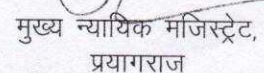 मुख्य न्यायिक मजिस्ट्रेट,
प्रयागराज